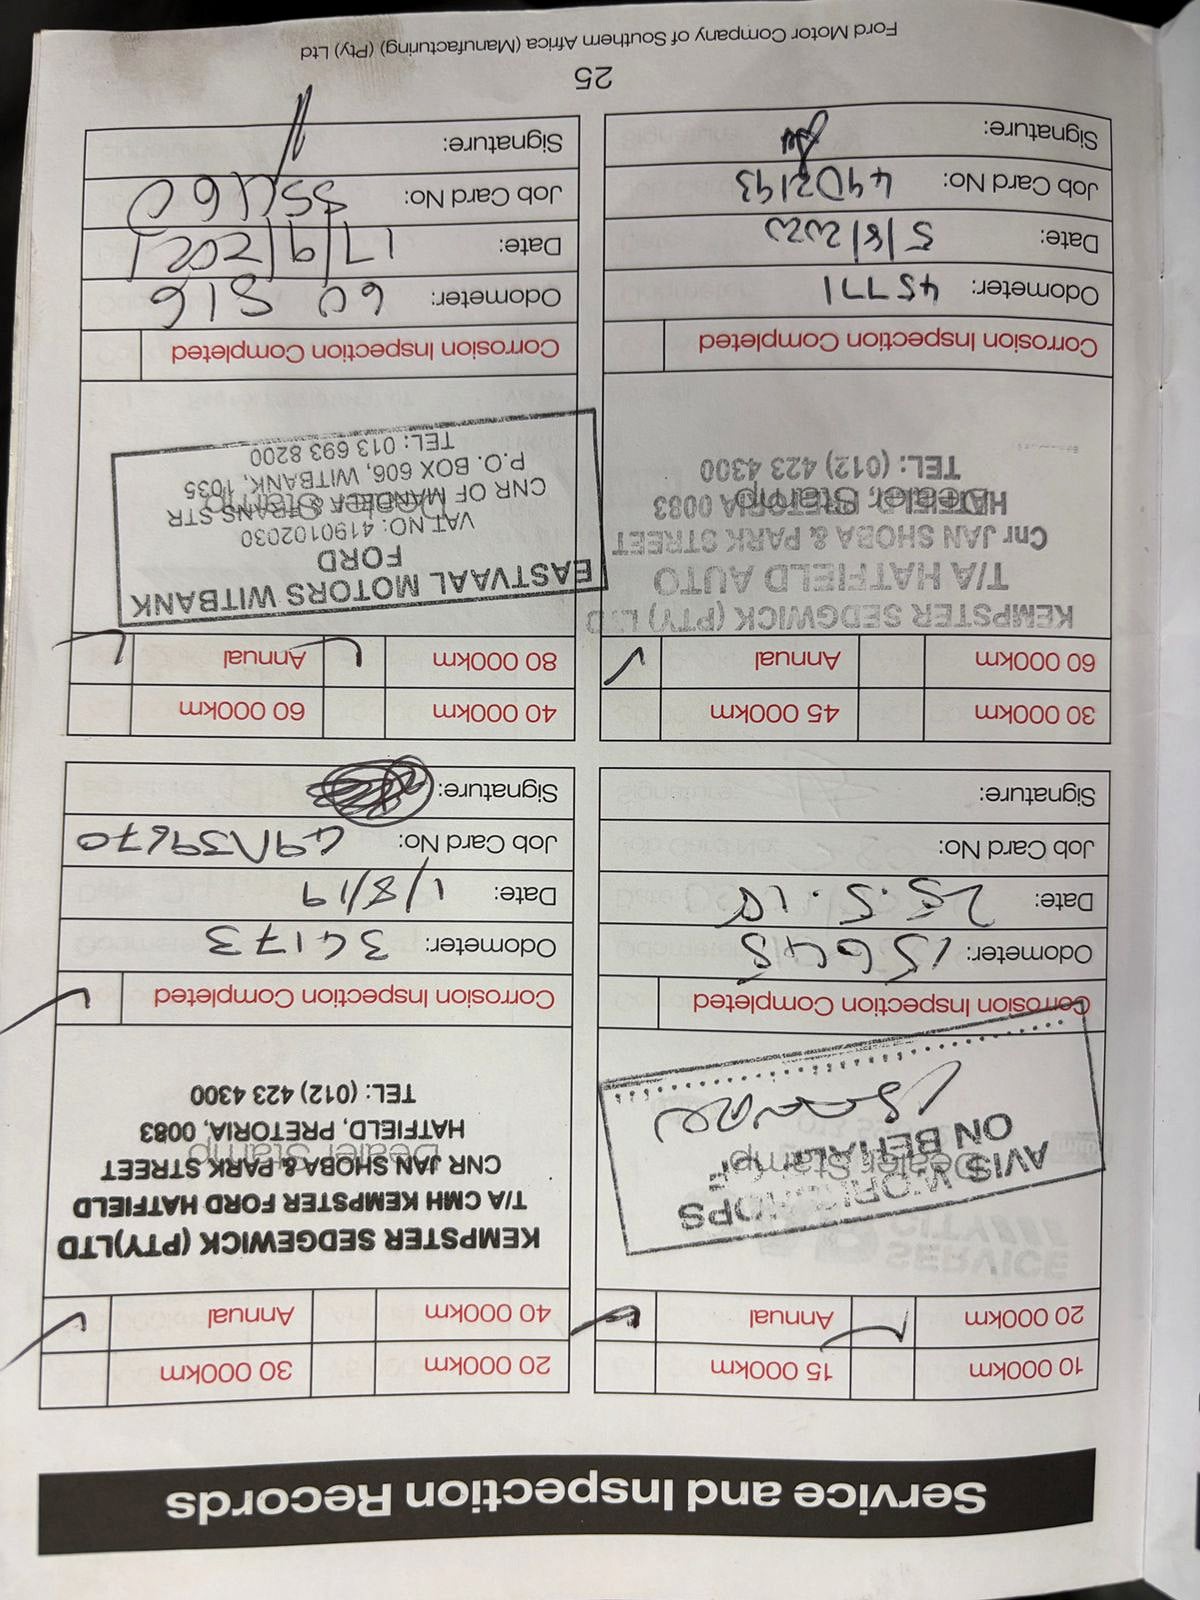 Service and Inspection Records
10 000km 15 000km
20 000km Annual
CITY
SERVICE
AVIS WORKSHOPS
ON BEHALF OF
Dealer Stamp
Corrosion Inspection Completed
Odometer: 15645
Date: 25.5.18
Job Card No:
Signature:
20 000km 30 000km
40 000km Annual
KEMPSTER SEDGEWICK (PTY)LTD
T/A CMH KEMPSTER FORD HATFIELD
CNR JAN SHOBA & PARK STREET
Dealer Stamp
HATFIELD, PRETORIA, 0083
TEL: (012) 423 4300
Corrosion Inspection Completed
Odometer: 34173
Date: 1/8/19
Job Card No: 49N39670
Signature:
30 000km 45 000km
60 000km Annual
KEMPSTER SEDGWICK (PTY) LTD
T/A HATFIELD AUTO
Cnr JAN SHOBA & PARK STREET
HATFIELD, PRETORIA 0083
Dealer Stamp
TEL: (012) 423 4300
Corrosion Inspection Completed
Odometer: 45771
Date: 5/8/2020
Job Card No: 49D2193
Signature:
40 000km 60 000km
80 000km Annual
EASTVAAL MOTORS WITBANK
FORD
VAT NO: 4190102030
CNR OF MANDELA & TRANS STR
Dealer Stamp
P.O. BOX 606, WITBANK, 1035
TEL: 013 693 8200
Corrosion Inspection Completed
Odometer: 60 816
Date: 17/9/2021
Job Card No: 35460
Signature:
25
Ford Motor Company of Southern Africa (Manufacturing) (Pty) Ltd